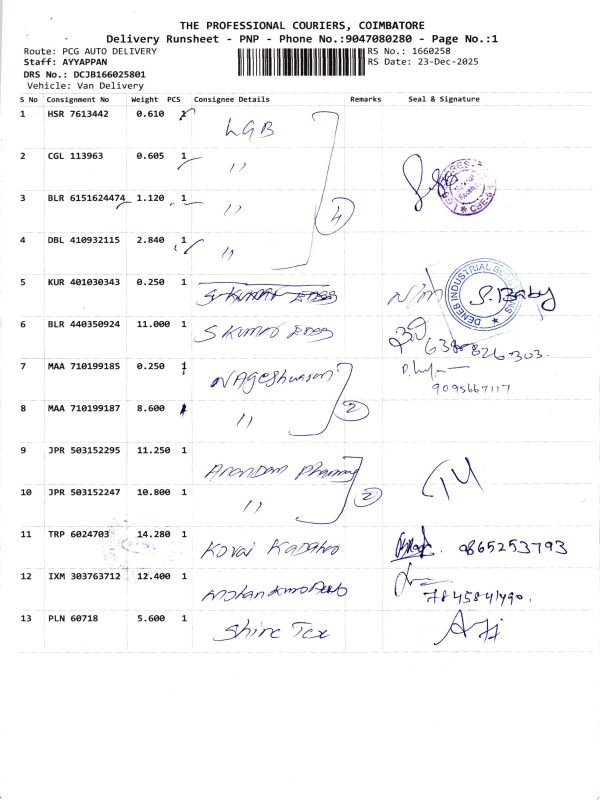 THE PROFESSIONAL COURIERS, COIMBATORE
Delivery Runsheet - PNP - Phone No.:9047080280 - Page No.:1
Route: PCG AUTO DELIVERY RS No.: 1660258
Staff: AYYAPPAN RS Date: 23-Dec-2025
DRS No.: DCJB166025801
Vehicle: Van Delivery
S No Consignment No Weight PCS Consignee Details Remarks Seal & Signature
1 HSR 7613442 0.610 1 LGB
2 CGL 113963 0.605 1 ,,
3 BLR 6151624474 1.120 1 ,, 4
4 DBL 410932115 2.840 1 ,,
5 KUR 401030343 0.250 1 S KUMAR ENGG N/M S. Baby
DENEB INDUSTRIAL
6 BLR 440350924 11.000 1 S KUMAR ENGG
7 MAA 710199185 0.250 1
9095667117
8 MAA 710199187 8.600 1 ,, 2
9 JPR 503152295 11.250 1 Pharmacy
10 JPR 503152247 10.800 1 ,, 2
11 TRP 6024703 14.280 1 Kovai 9865253793
12 IXM 303763712 12.400 1
13 PLN 60718 5.600 1 Shine Tex